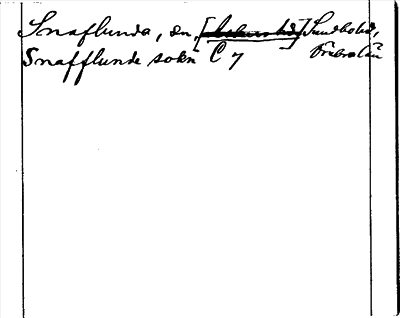 Snaflunda, en, [ ] Sundbohd,
Snafflunde sokn C 7 Örebro län